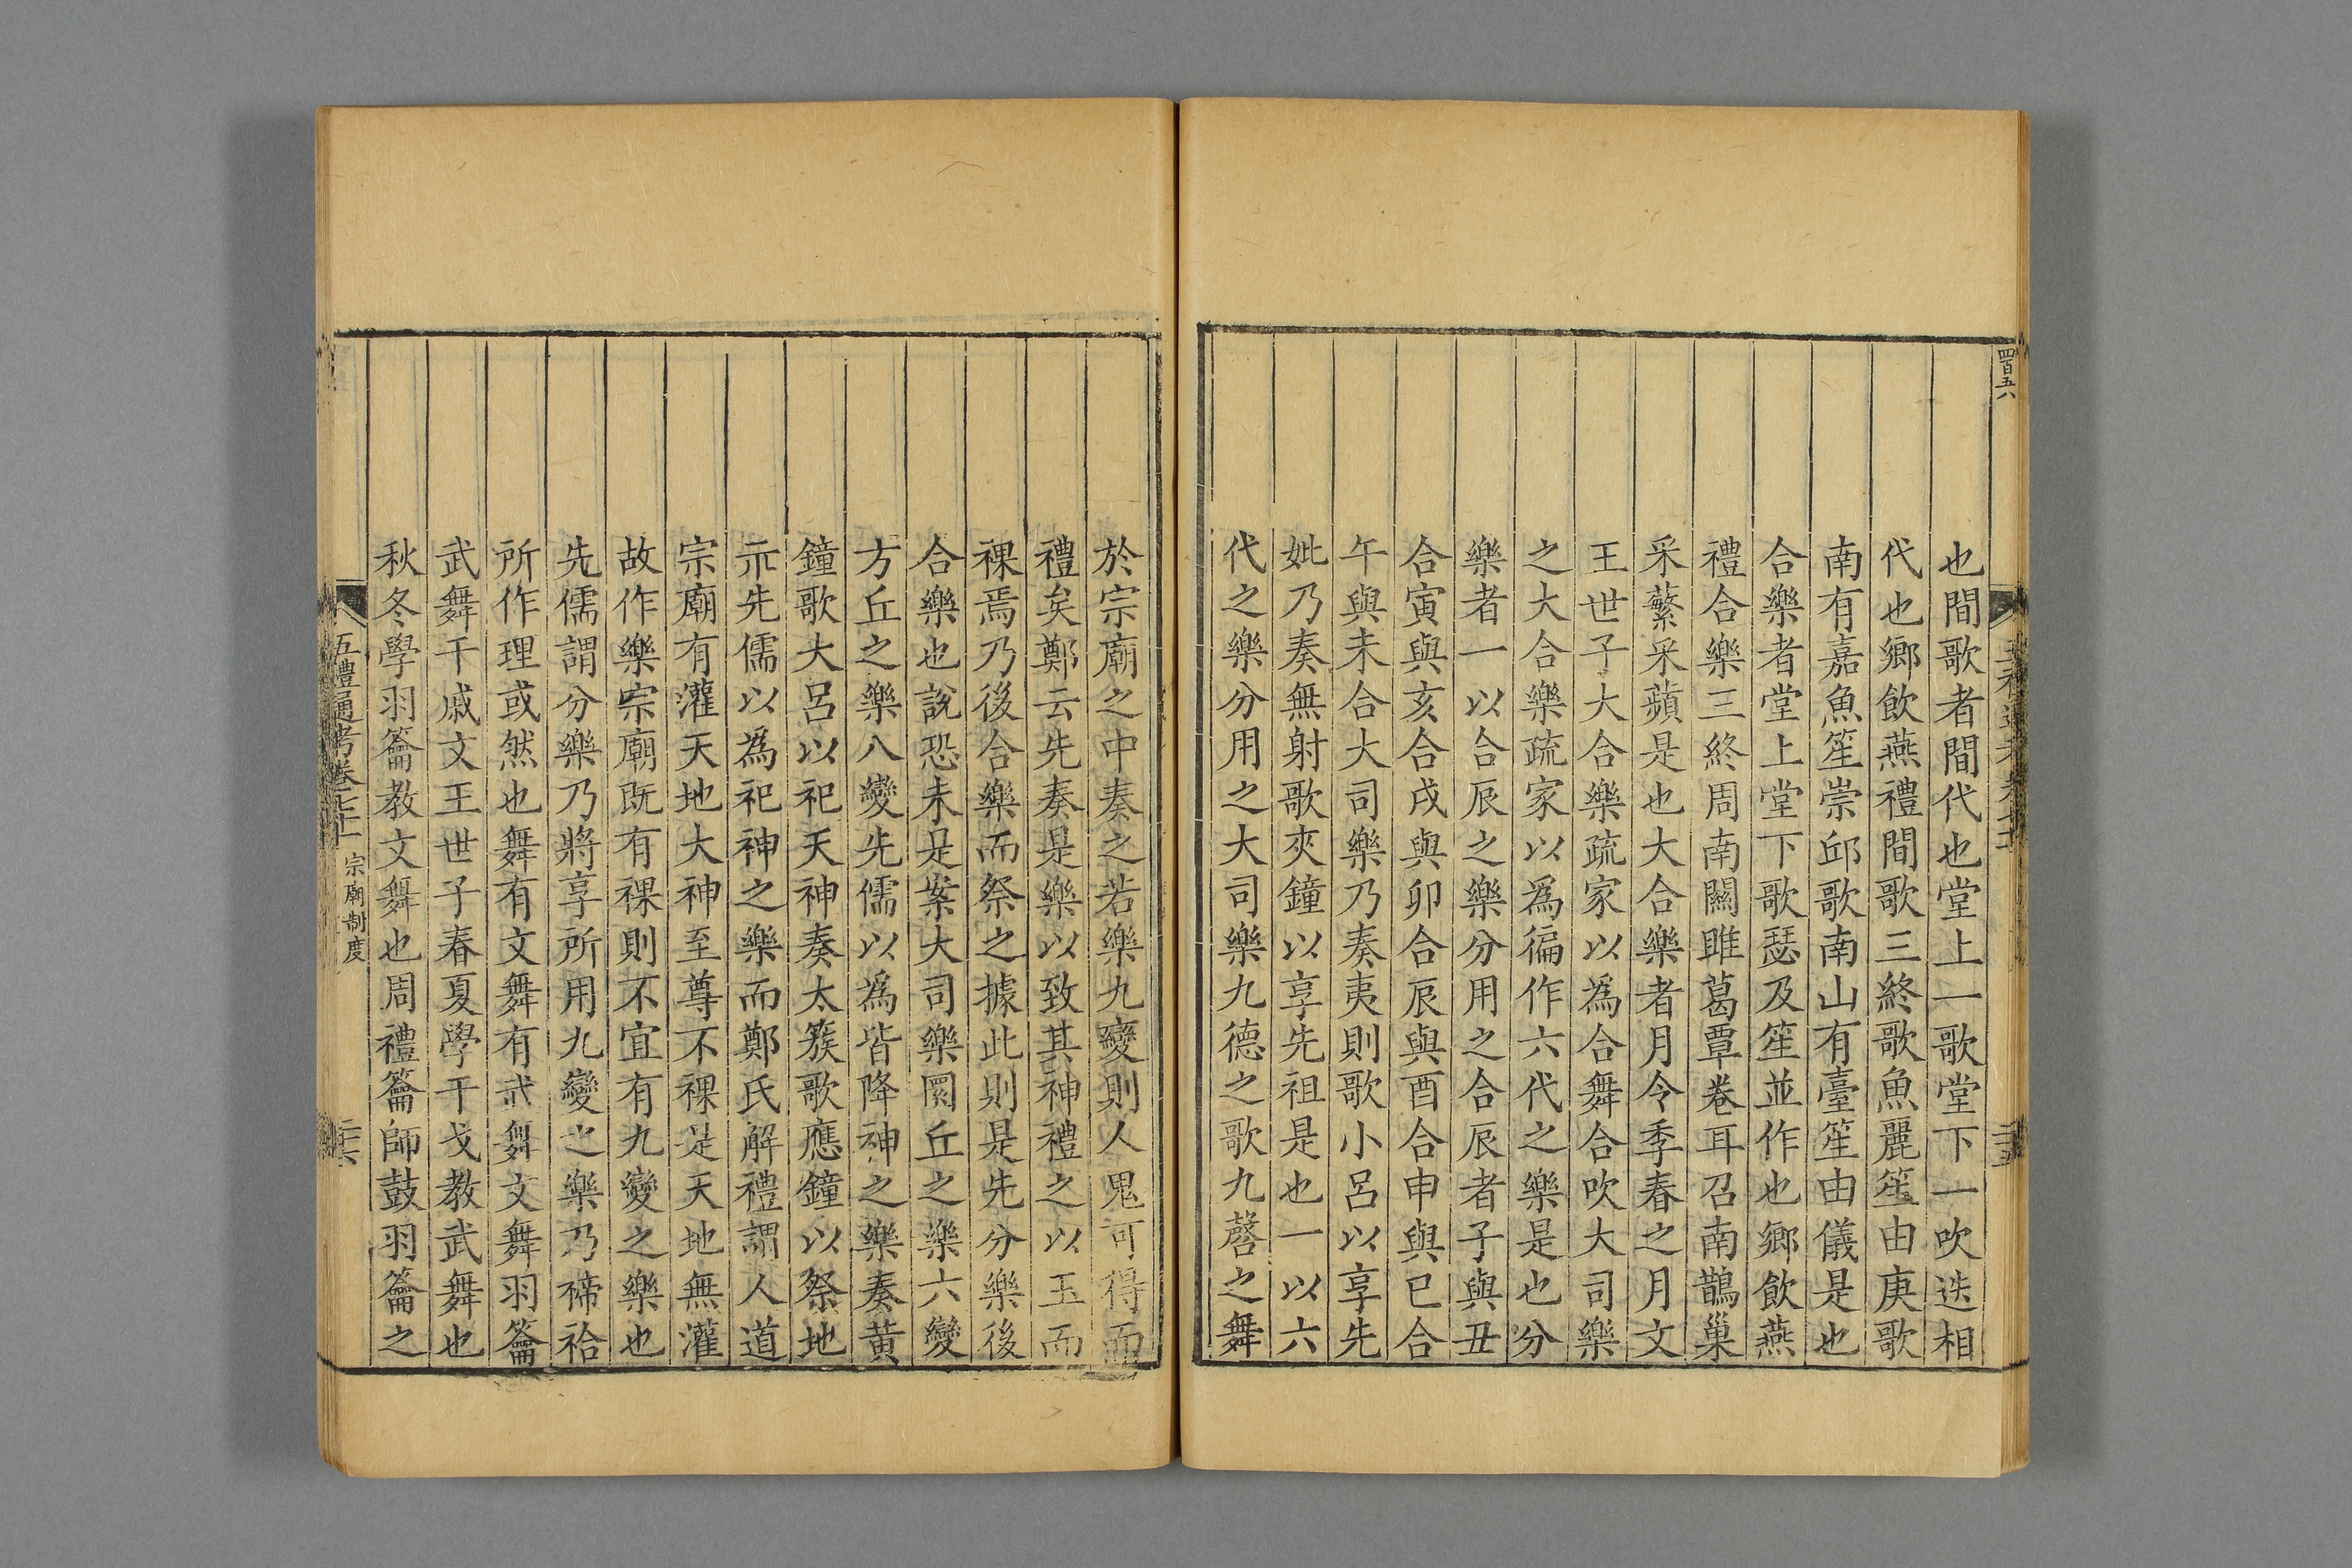 四百五六
也間歌者間代也堂上一歌堂下一吹迭相
代也鄉飲燕禮間歌三終歌魚麗笙由庚歌
南有嘉魚笙崇邱歌南山有臺笙由儀是也
合樂者堂上堂下歌瑟及笙並作也鄉飲燕
禮合樂三終周南關雎葛覃卷耳召南鵲巢
采蘩采蘋是也大合樂者月令季春之月文
王世子大合樂疏家以為合舞合吹大司樂
之大合樂疏家以為徧作六代之樂是也分
樂者一以合辰之樂分用之合辰者子與丑
合寅與亥合戌與卯合辰與酉合申與巳合
午與未合大司樂乃奏夷則歌小呂以享先
妣乃奏無射歌夾鐘以享先祖是也一以六
代之樂分用之大司樂九德之歌九磬之舞
於宗廟之中奏之若樂九變則人鬼可得而
禮矣鄭云先奏是樂以致其神禮之以玉而
祼焉乃後合樂而祭之據此則是先分樂後
合樂也說恐未是案大司樂圜丘之樂六變
方丘之樂八變先儒以為皆降神之樂奏黃
鐘歌大呂以祀天神奏太簇歌應鐘以祭地
示先儒以為祀神之樂而鄭氏解禮謂人道
宗廟有灌天地大神至尊不祼是天地無灌
故作樂宗廟既有祼則不宜有九變之樂也
先儒謂分樂乃將享所用九變之樂乃禘祫
所作理或然也舞有文舞有武舞文舞羽籥
武舞干戚文王世子春夏學干戈教武舞也
秋冬學羽籥教文舞也周禮籥師鼓羽籥之
五禮通考卷七十 宗廟制度